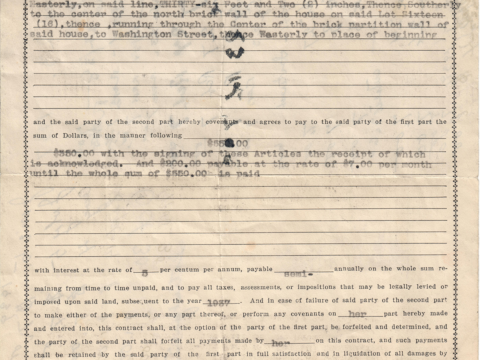 Easterly, on said line, THIRTY-six Feet and Two (2) inches, Thence Southerly
to the center of the north brick wall of the house on said Lot Sixteen
(16), thence ,running through the Center of the brick partition wall of
said house, to Washington Street, thence Westerly to place of beginning
and the said party of the second part hereby covenants and agrees to pay to the said party of the first part the
sum of Dollars, in the manner following
00
$350.00 with the signing of these Articles the receipt of which
is acknowledged. And $200.00 payable at the rate of $7.00 per month
until the whole sum of $550.00 is paid
with interest at the rate of 5 per centum per annum, payable semi- annually on the whole sum re-
maining from time to time unpaid, and to pay all taxes, assessments, or impositions that may be locally levied or
imposed upon said land, subsequent to the year 1937 . And in case of failure of said party of the second part
to make either of the payments, or any part thereof, or perform any covenants on her part hereby made
and entered into, this contract shall, at the option of the party of the first part, be forfeited and determined, and
the party of the second part shall forfeit all payments made by her on this contract, and such payments
shall be retained by the said party of the first part in full satisfaction and in liquidation of all damages by